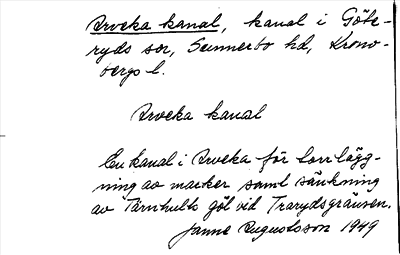 Arveka kanal, kanal i Göte-
ryds sn, Sunnerbo hd, Krono-
bergs l.
Arveka kanal
En kanal i Arveka för torrlägg-
ning av marker samt sänkning
av Tärnhults göl vid Trarydsgränsen.
Janne Augustsson 1949